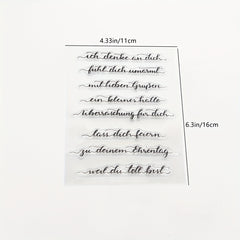 4.33in/11cm
ich denke an dich
fühl dich umarmt
mit lieben Grüßen
ein kleiner hallo
Überraschung für dich
lass dich feiern
zu deinem Ehrentag
weil du toll bist
6.3in/16cm